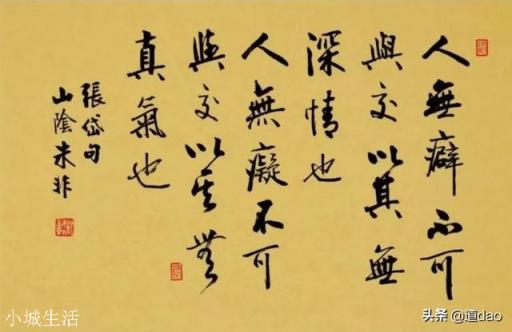 人無癖不可
與交以其無
深情也
人無癡不可
與交以其無
真氣也
張岱句
山陰 非
小城生活
头条 @道dao